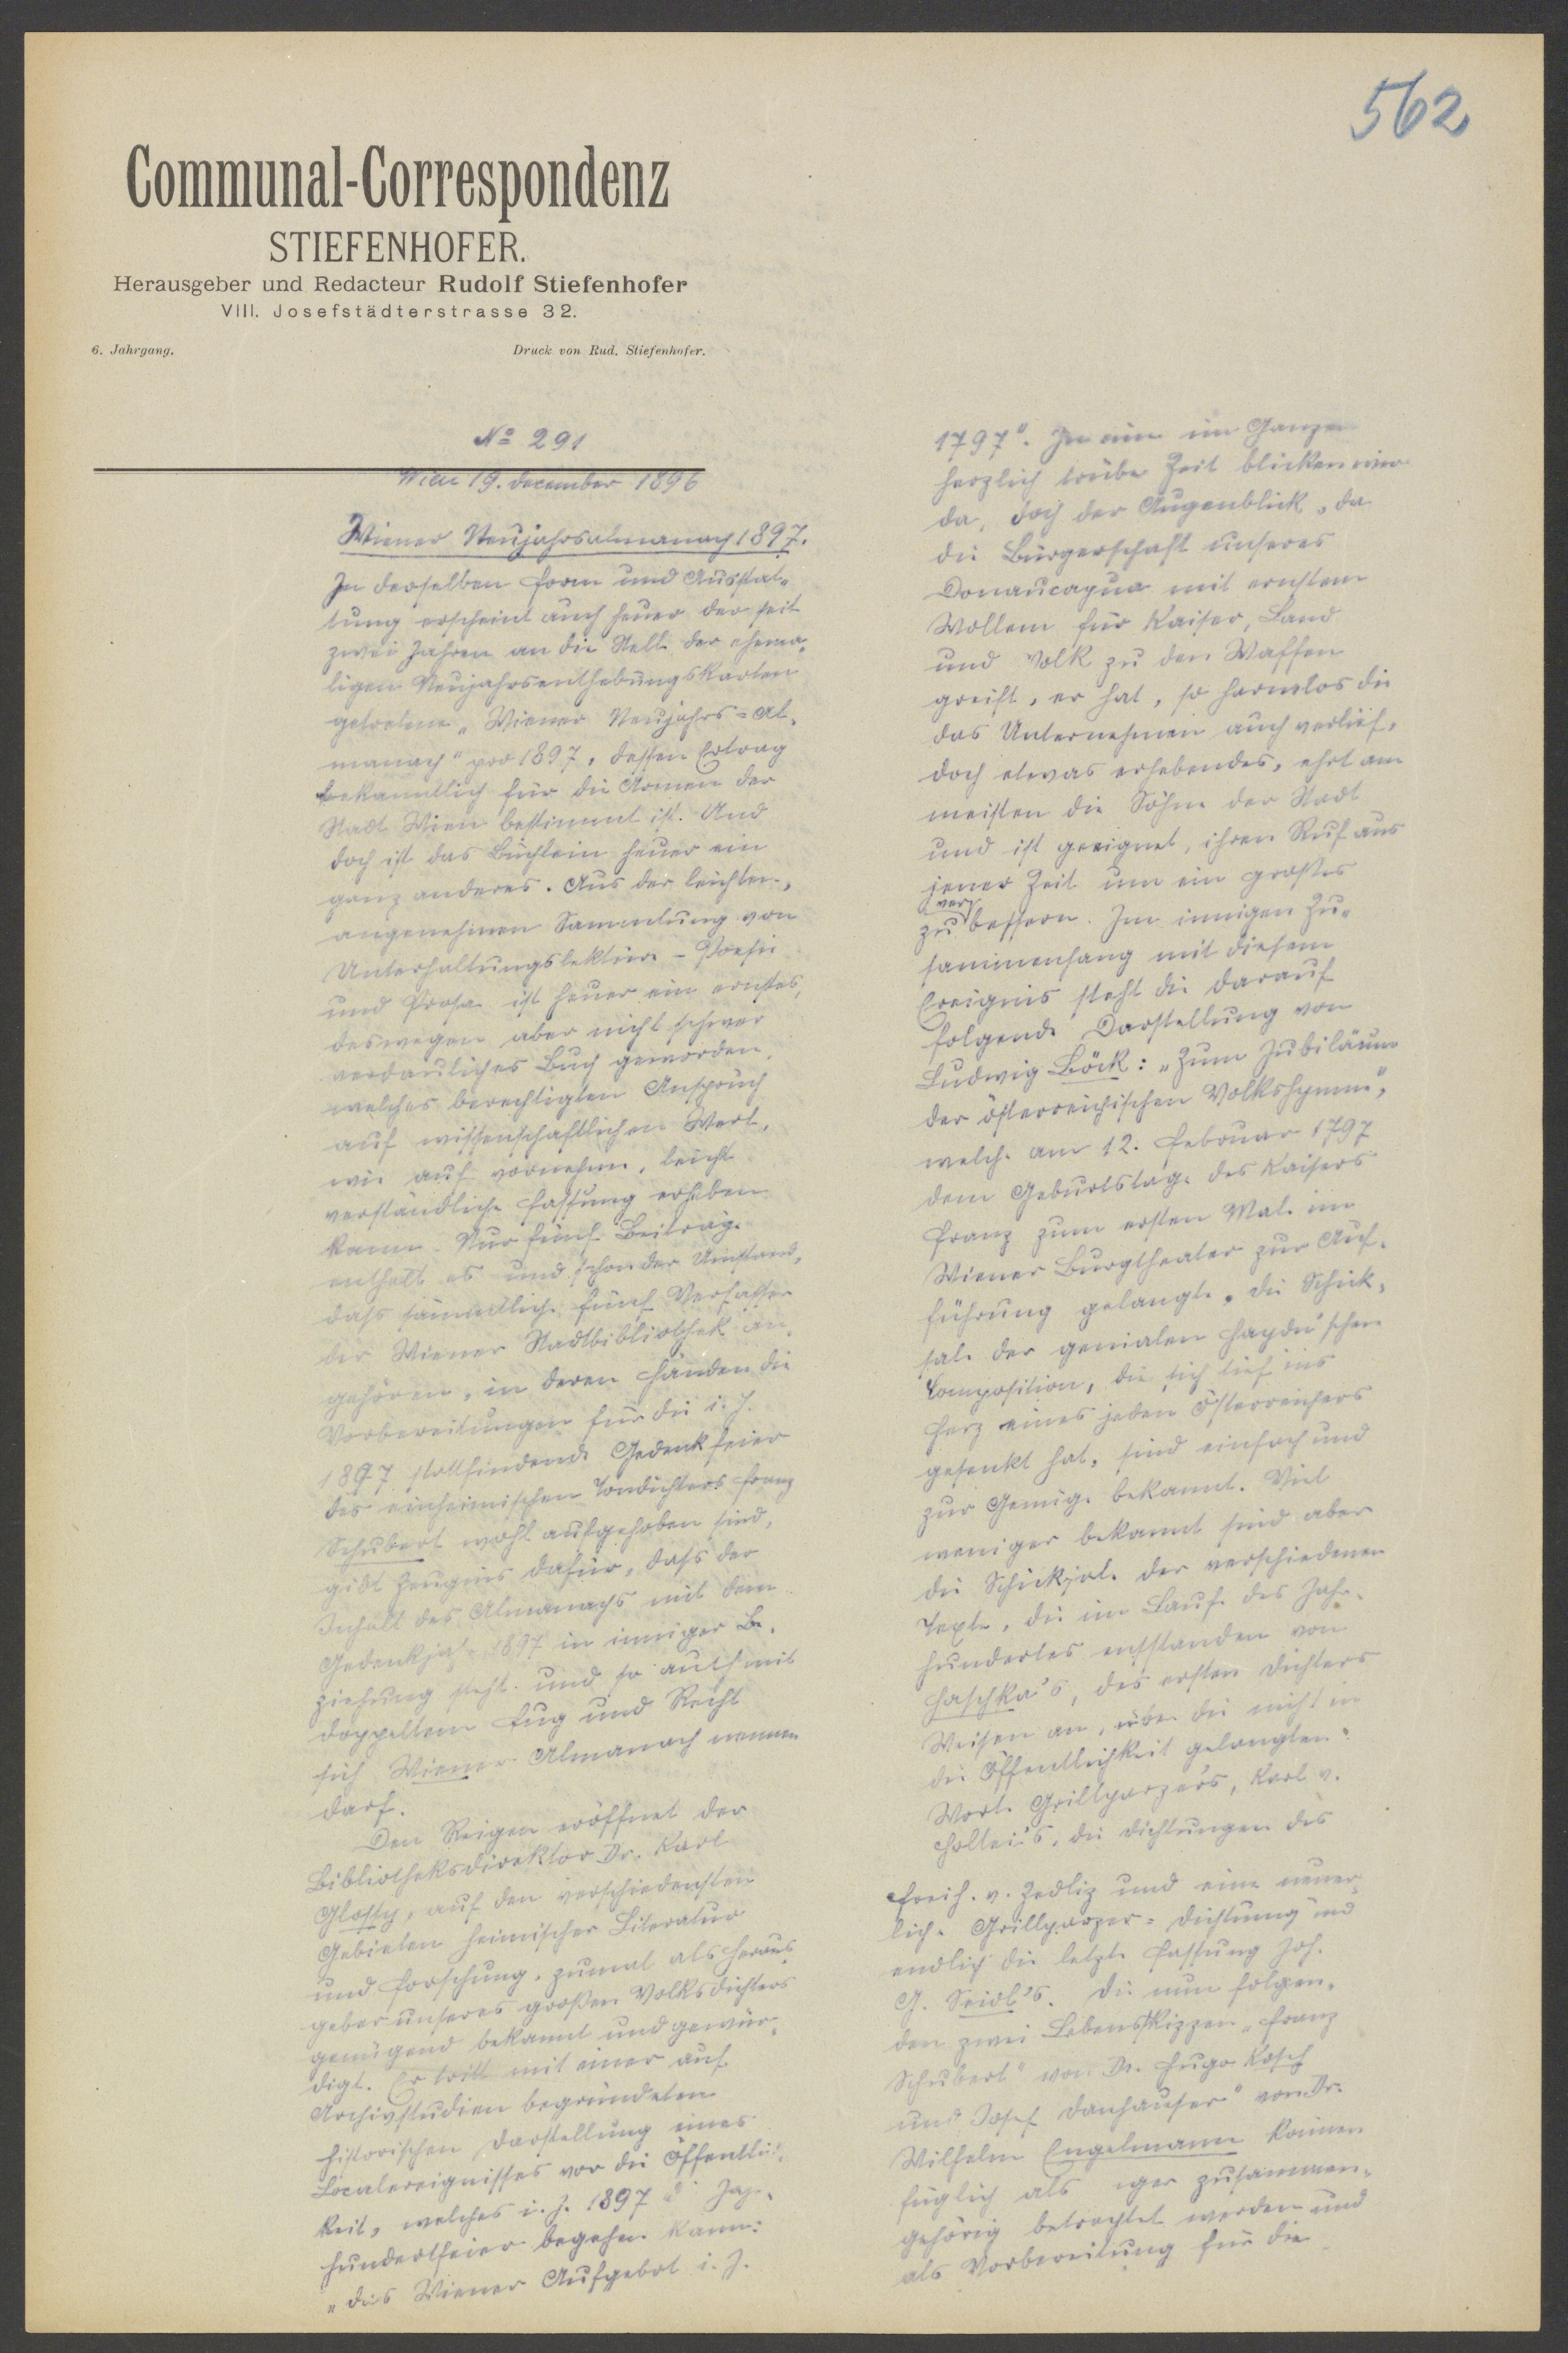 562
Communal-Correspondenz
STIEFENHOFER.
Herausgeber und Redacteur Rudolf Stiefenhofer
VIII. Josefstädterstrasse 32.
6. Jahrgang.
Druck von Rud. Stiefenhofer.
No 291
Wien 19. december 1896
Wiener Neujahrsalmanach 1897.
In derselben Form und Ausstat„
tung erscheint auch heuer der seit
zwei Jahren an die Stelle der ehema„
ligen Neujahrsenthebungskarten
getretene „Wiener Neujahrs=Al„
manach" pro 1897, dessen Ertrag
bekanntlich für die Armen der
Stadt Wien bestimmt ist. Und
doch ist das Büchlein heuer ein
ganz anderes. Aus der leichten,
angenehmen Sammlung von
Unterhaltungslektüre – Poesie
und Prosa ist heuer ein ernstes,
deswegen aber nicht schwer
verdauliches Buch geworden,
welches berechtigten Anspruch
auf wissenschaftlichen Wert,
wie auf vornehme, leicht
verständliche Fassung erheben
kann. Nur fünf Beiträge
enthält es und schon der Umstand,
dass sämmtliche fünf Verfasser
der Wiener Stadtbibliothek an„
gehören, in deren Händen die
Vorbereitungen für die i. J.
1897 stattfindende Gedenkfeier
des einheimischen Tondichters Franz
Schubert wohl aufgehoben sind,
gibt Zeugnis dafür, dass der
Inhalt des Almanachs mit dem
Gedenkjahr 1897 in inniger Be„
ziehung steht und so auch mit
doppeltem Fug und Recht
sich Wiener Almanach nennen
darf.
Den Reigen eröffnet der
Bibliotheksdirektor Dr. Karl
Glossy, auf den verschiedensten
Gebieten heimischer Literatur
und Forschung, zumal als Heraus„
geber unseres großen Volksdichters
genügend bekannt und gewür„
digt. Er tritt mit einer auf
Archivstudien begründeten
historischen Darstellung eines
Localereignisses vor die Öffentlich„
keit, welches i. J. 1897 d Jahr„
hundertfeier begehen kann:
„das Wiener Aufgebot i. J.
1797". In eine im Ganzen
herzlich trübe Zeit blicken wir
da, doch der Augenblick, da
die Bürgerschaft unseres
Donaucapua mit ernstem
Wollen für Kaiser, Land
und Volk zu den Waffen
greift, er hat, so harmlos die
das Unternehmen auch verlief,
doch etwas erhebendes, ehrt am
meisten die Söhne der Stadt
und ist geeignet, ihren Ruf aus
jener Zeit um ein großes
zu verbessern. Im innigen Zu„
sammenhang mit diesem
Ereignis steht die darauf
folgende Darstellung von
Ludwig Böck: „Zum Jubiläum
der österreichischen Volkshymne",
welche am 12. Februar 1797
dem Geburtstage des Kaisers
Franz zum ersten Male im
Wiener Burgtheater zur Auf„
führung gelangte. Die Schick„
sale der genialen Haydn'schen
Composition, die sich tief ins
Herz eines jeden Österreichers
gesenkt hat, sind einfach und
zur Genüge bekannt. Viel
weniger bekannt sind aber
die Schicksale der verschiedenen
Texte, die im Laufe des Jahr„
hundertes entstanden von
Haschka's, des ersten Dichters
Weisen an, über die nicht in
die Öffentlichkeit gelangten
Worte Grillparzer's, Karl v.
Holtei's, die Dichtungen des
Freih. v. Zedliz und eine neuer„
liche Grillparzer=Dichtung und
endlich die letzte Fassung Joh.
G. Seidl's. Die nun folgen„
den zwei Lebensskizzen „Franz
Schubert" von Dr. Hugo Kosch
und Josef Danhauser" von Dr.
Wilhelm Engelmann können
füglich als zusammen„
gehörig betrachtet werden und
als Vorbereitung für die